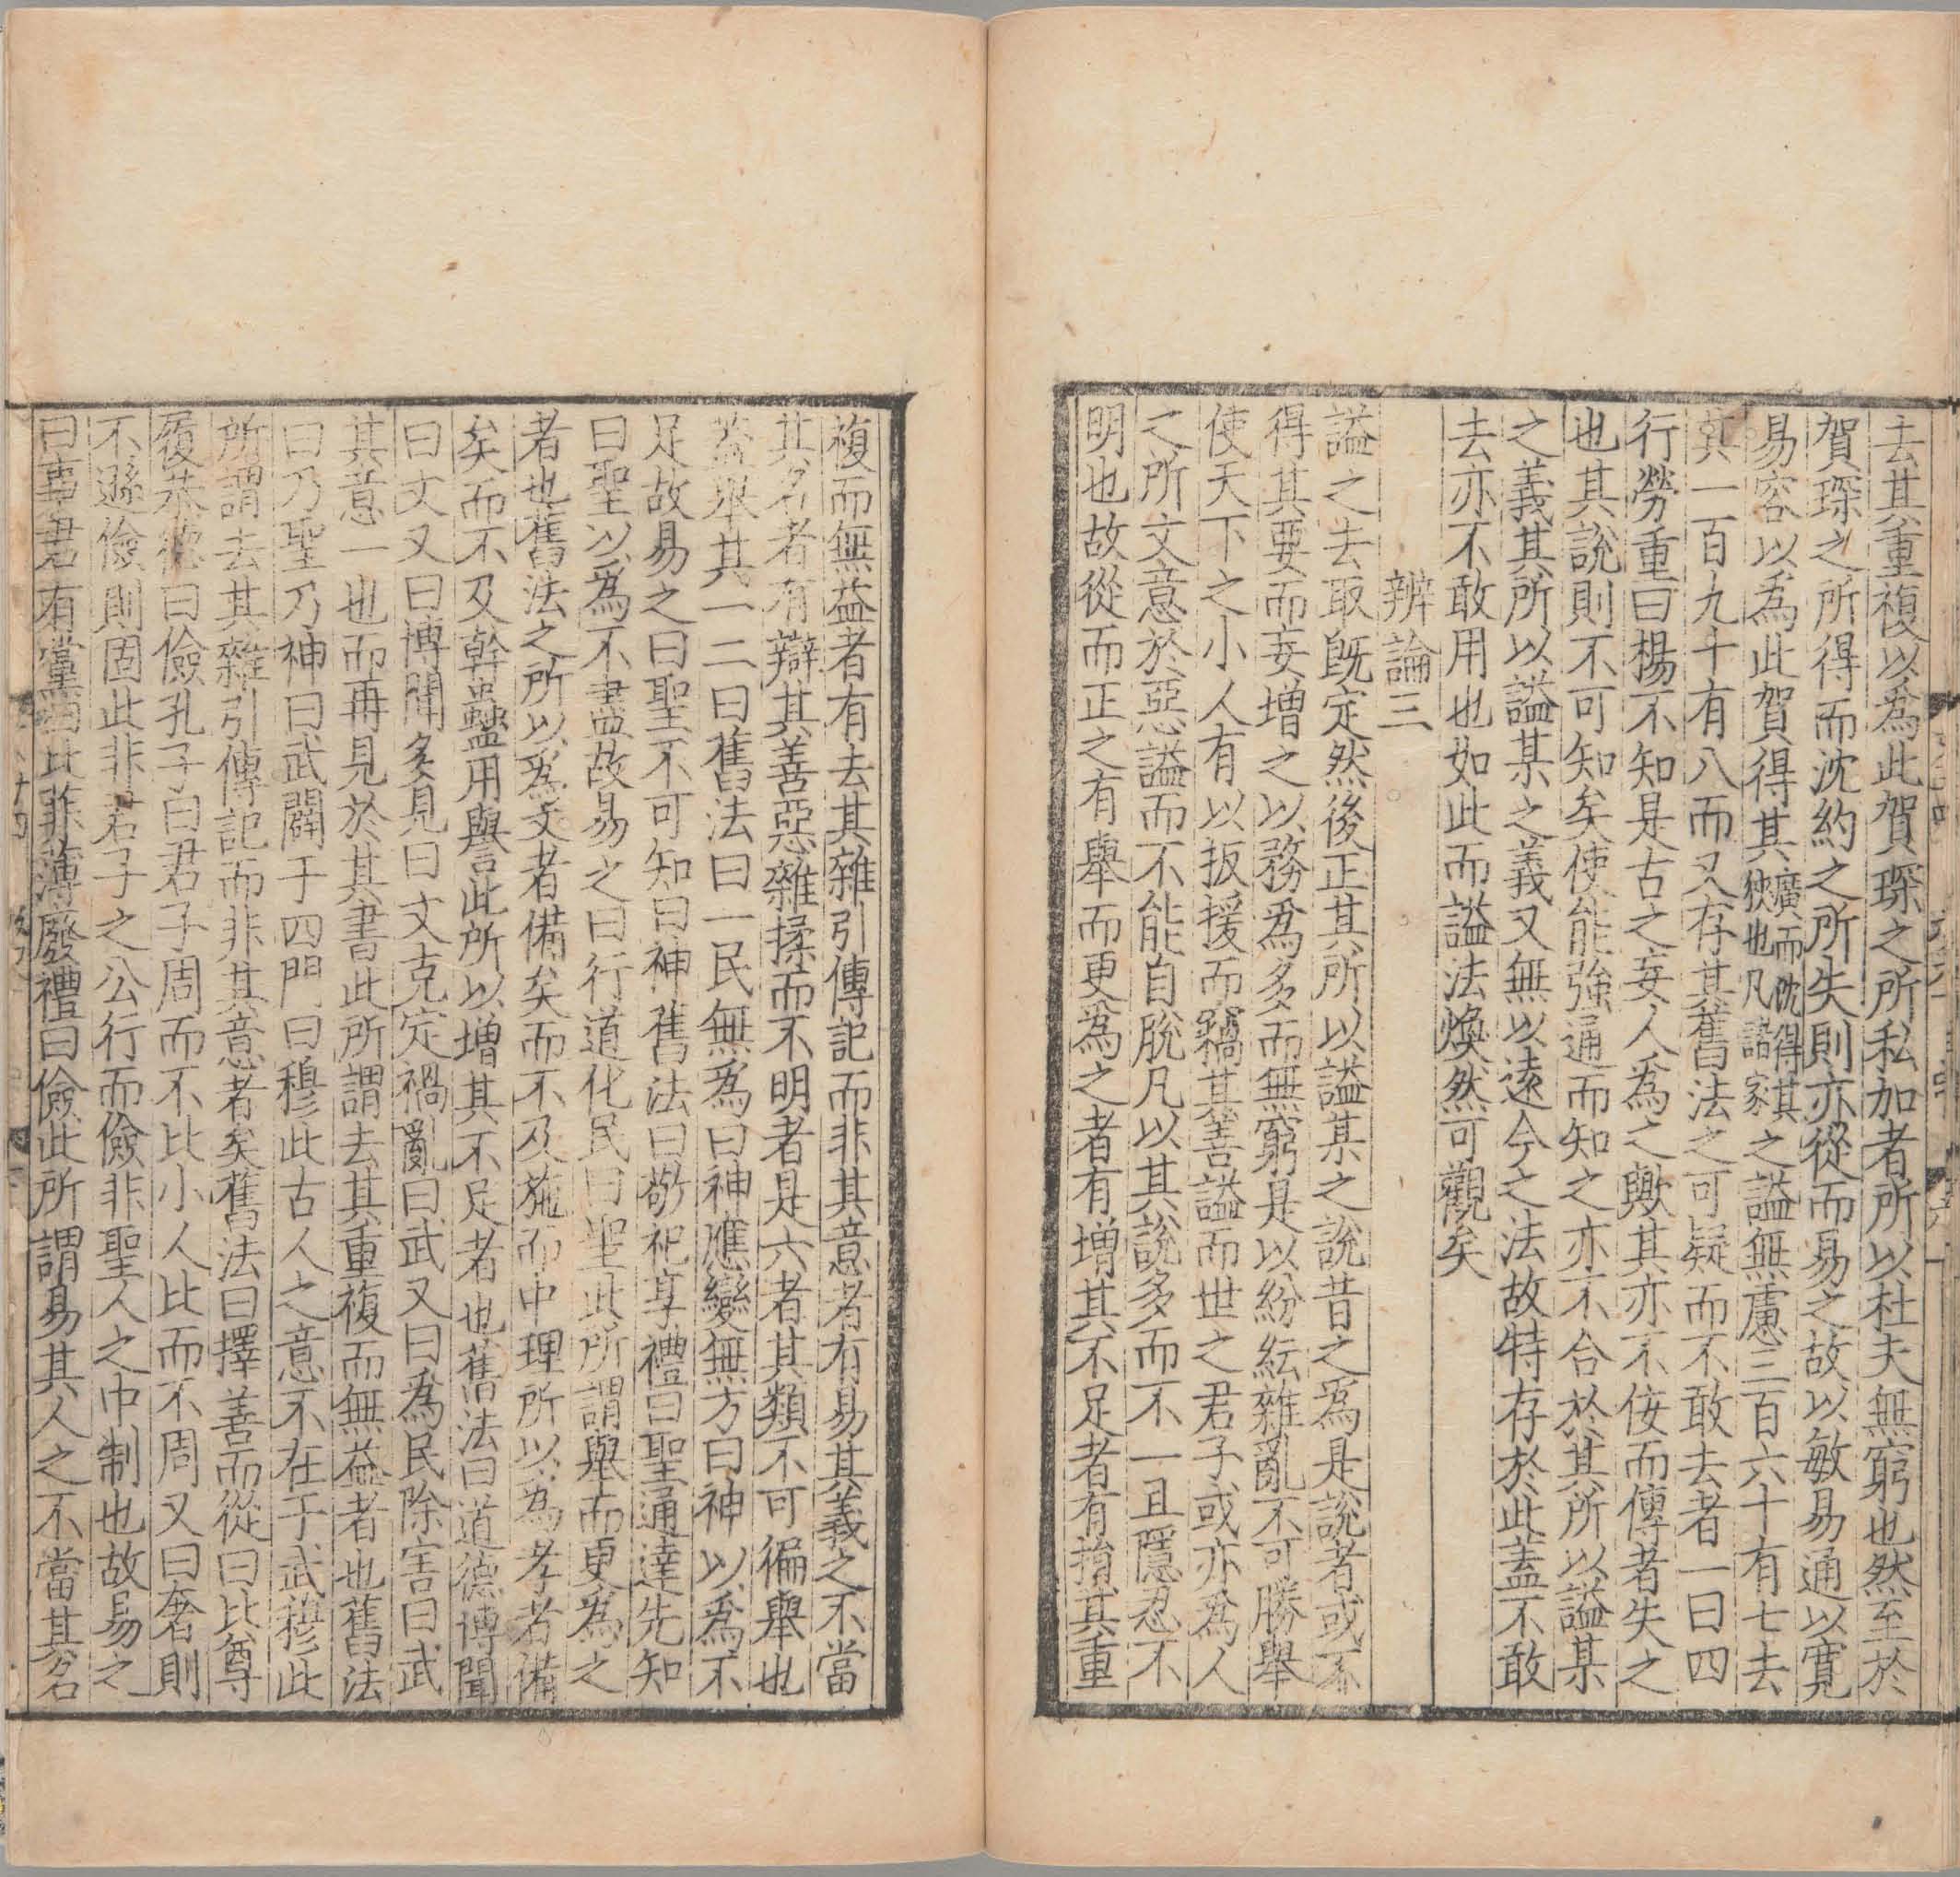 去其重複以爲此賀琛之所私加者所以杜夫無窮也然至於
賀琛之所得而沈約之所失則亦從而易之故以敏易通以寬
易容以爲此賀得其廣而沈得其狹也凡諸家之謚無慮三百六十有七去
其一百九十有八而又存其舊法之可疑而不敢去者一曰四
行勞重曰楊不知是古之妄人爲之歟其亦不侫而傳者失之
也其說則不可知矣使能強通而知之亦不合於其所以謚某
之義其所以謚某之義又無以遠今之法故特存於此蓋不敢
去亦不敢用也如此而謚法煥然可觀矣
辨論三
謚之去取旣定然後正其所以謚某之說昔之爲是說者或不
得其要而妄增之以務爲多而無窮是以紛紜雜亂不可勝舉
使天下之小人有以扳援而竊其善謚而世之君子或亦爲人
之所文意於惡謚而不能自脫凡以其說多而不一且隱忍不
明也故從而正之有舉而更爲之者有增其不足者有損其重
複而無益者有去其雜引傳記而非其意者有易其義之不當
其名者有辯其善惡雜揉而不明者是六者其類不可徧舉也
蓋舉其一二曰舊法曰一民無爲曰神應變無方曰神以爲不
足故易之曰聖不可知曰神舊法曰敬祀享禮曰聖通達先知
曰聖以爲不盡故易之曰行道化民曰聖此所謂舉而更爲之
者也舊法之所以爲文者備矣而不及施而中理所以爲孝者備
矣而不及幹蠱用譽此所以增其不足者也舊法曰道德博聞
曰文又曰博聞多見曰文克定禍亂曰武又曰爲民除害曰武
其意一也而再見於其書此所謂去其重複而無益者也舊法
曰乃聖乃神曰武闢于四門曰穆此古人之意不在于武穆此
所謂去其雜引傳記而非其意者矣舊法曰擇善而從曰比尊
履恭德曰儉孔子曰君子周而不比小人比而不周又曰奢則
不遜儉則固此非君子之公行而儉非聖人之中制也故易之
曰事君有黨曰比菲薄廢禮曰儉此所謂易其人之不當其名